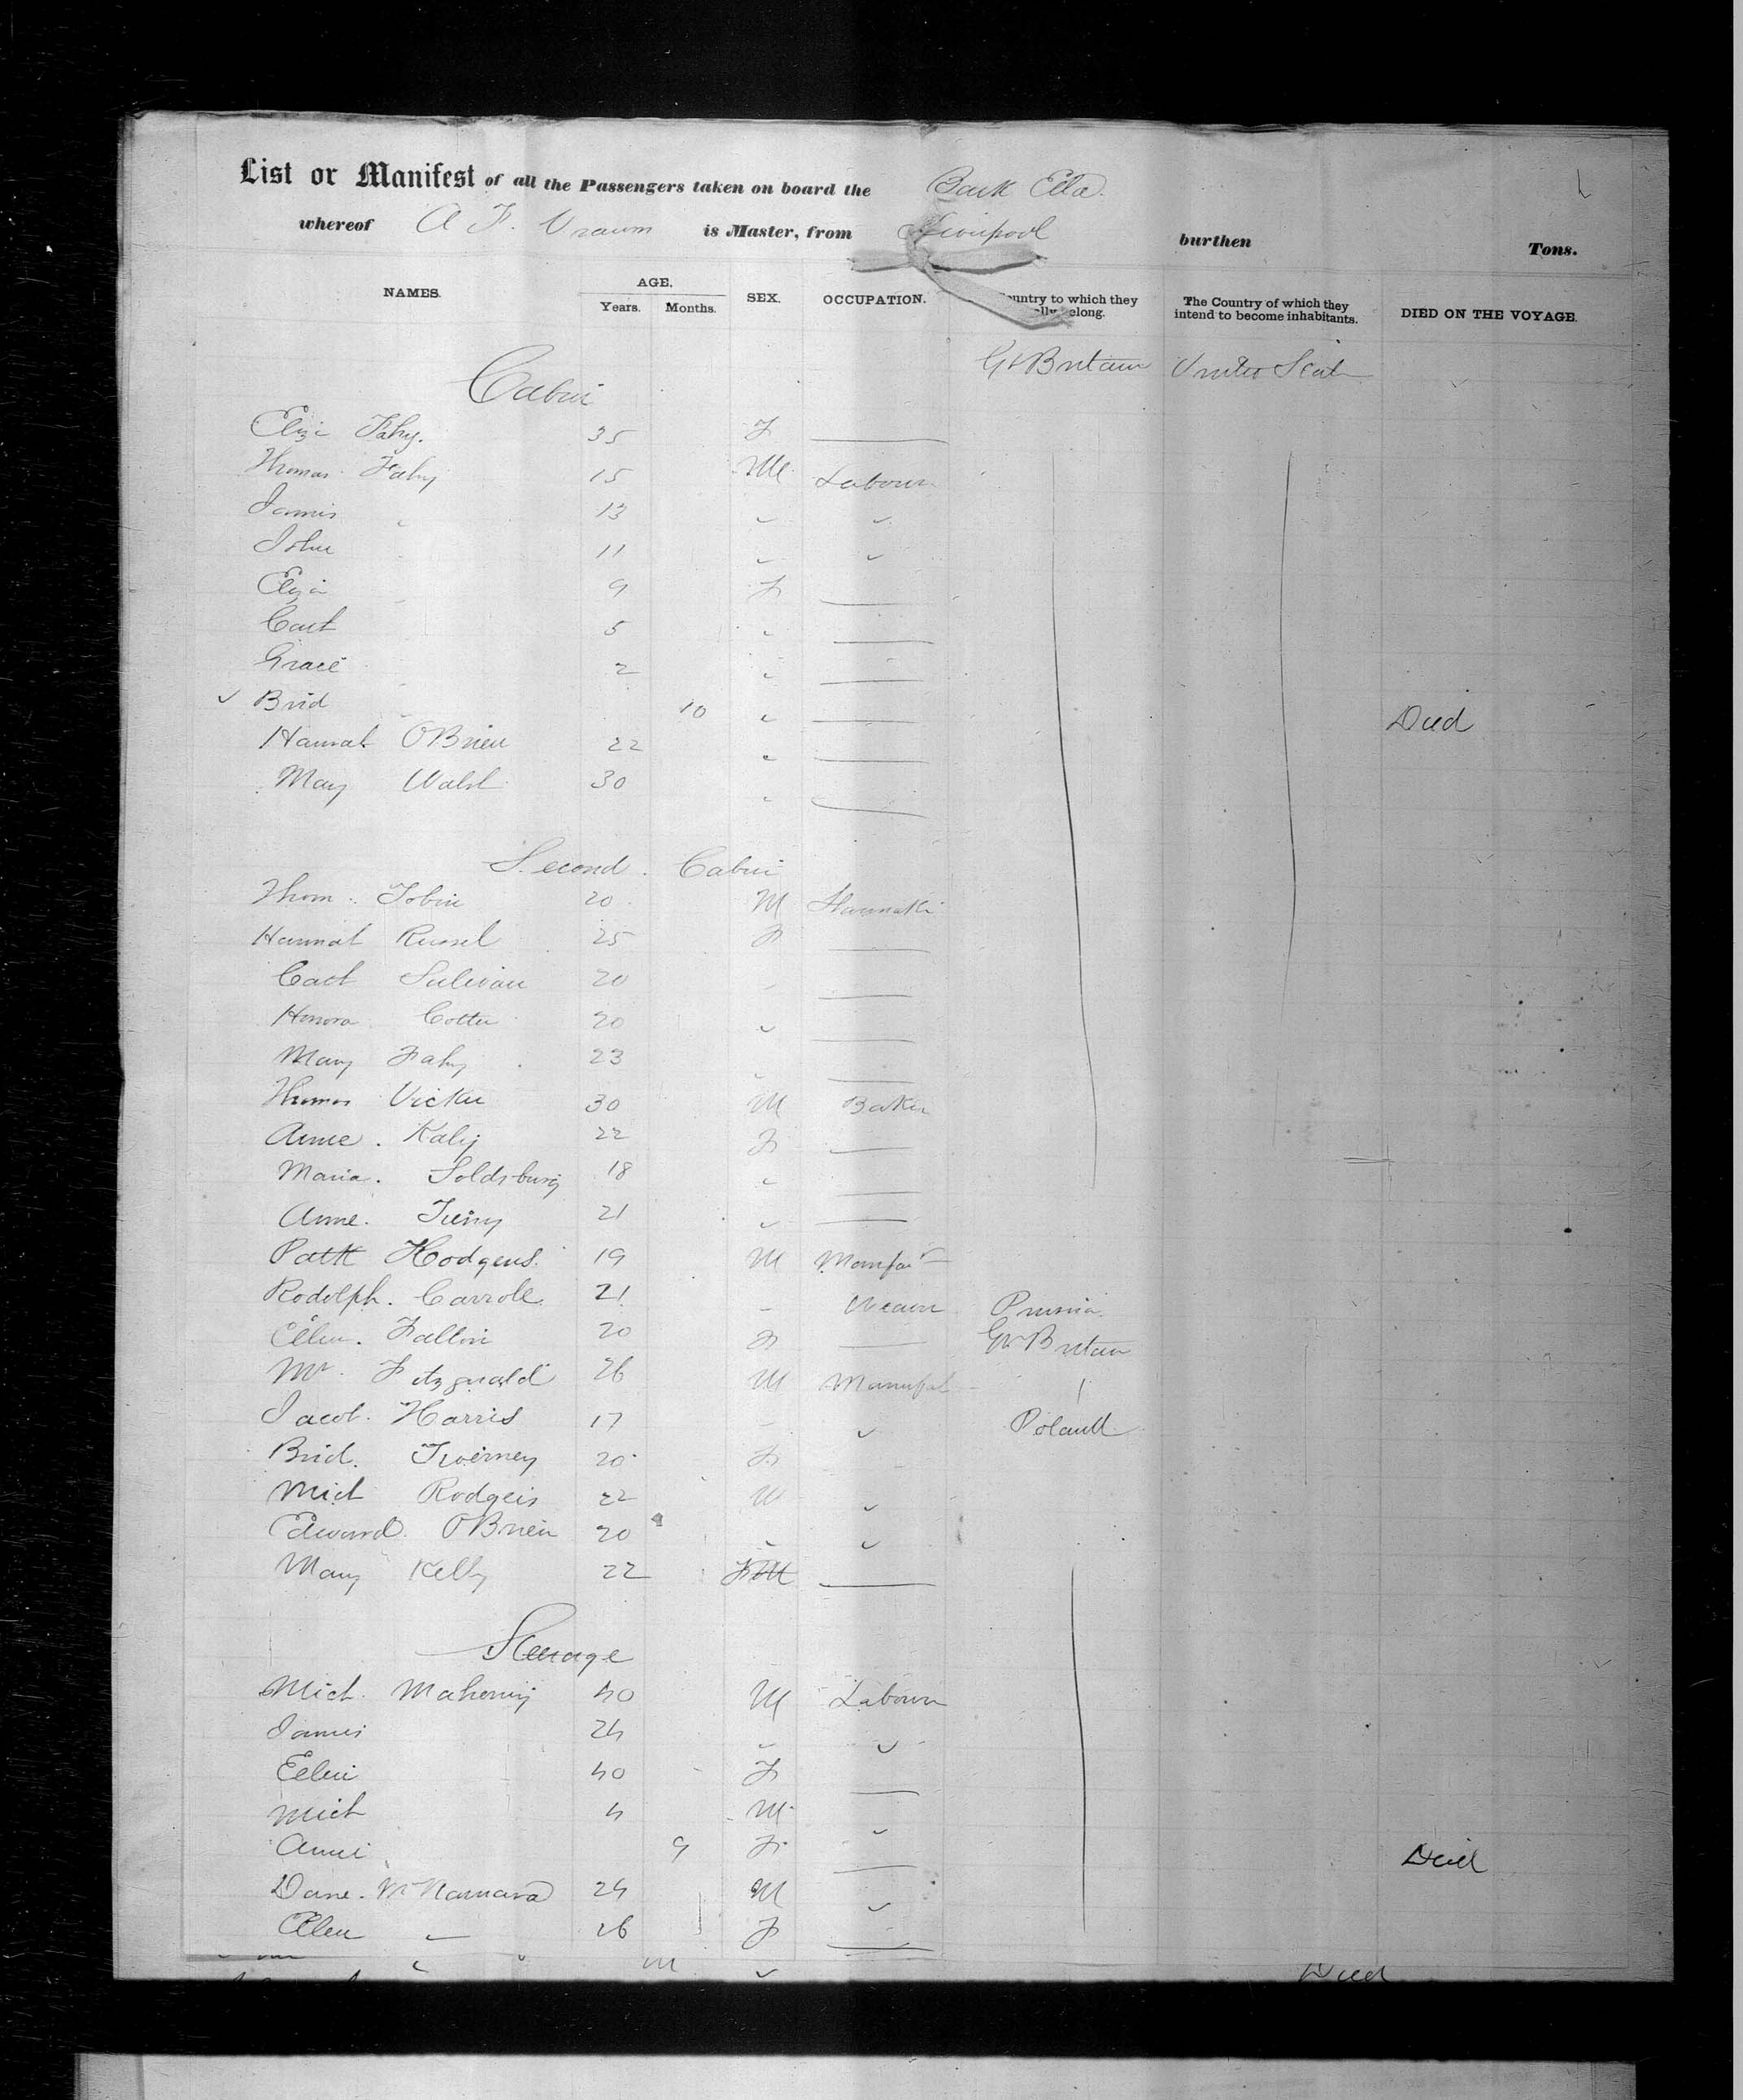 List or Manifest of all the Passengers taken on board the Bark Ella
whereof A F. is Master, from Liverpool burthen Tons.
NAMES. AGE. Years. Months. SEX. OCCUPATION. Country to which they elong. The Country of which they intend to become inhabitants. DIED ON THE VOYAGE.
Gt Britain United Stat
Cabin
Eliza Fahy. 35 F
Thomas Fahy 15 M Labourer
James 13
John 11
Eliza 9 F
Cath 5
Grace 2
Brid 10 Died
Hannah OBrien 22
Mary Walsh 30
Second Cabin
Thom. Tobin 20 M
Hannah Russel 25 F
Cath Sulivan 20
Honora Cotter 20
Mary Fahy 23
Thomas 30 M Baker
Anne. Kaly 22 F
Maria. Soldsbury 18
Anne. 21
Patk Hodgens. 19 M
Rodolph. Carroll 21 Prussia
Ellen. Fallin 20 F Gt Britain
Mr. Fitzgerald 26 M
Jacob. Harris 17 Poland
Brid. Twerney 20 F
Mich Rodgers 22 M
Edward. OBrien 20
Mary Kelly 22 F
Steerage
Mich. Mahony 40 M Labourer
James 24
Ellen 40 F
Mich 4 M
Anne 9 F Died
Dane. McNamara 24 M
Ellen 26 F
M Died